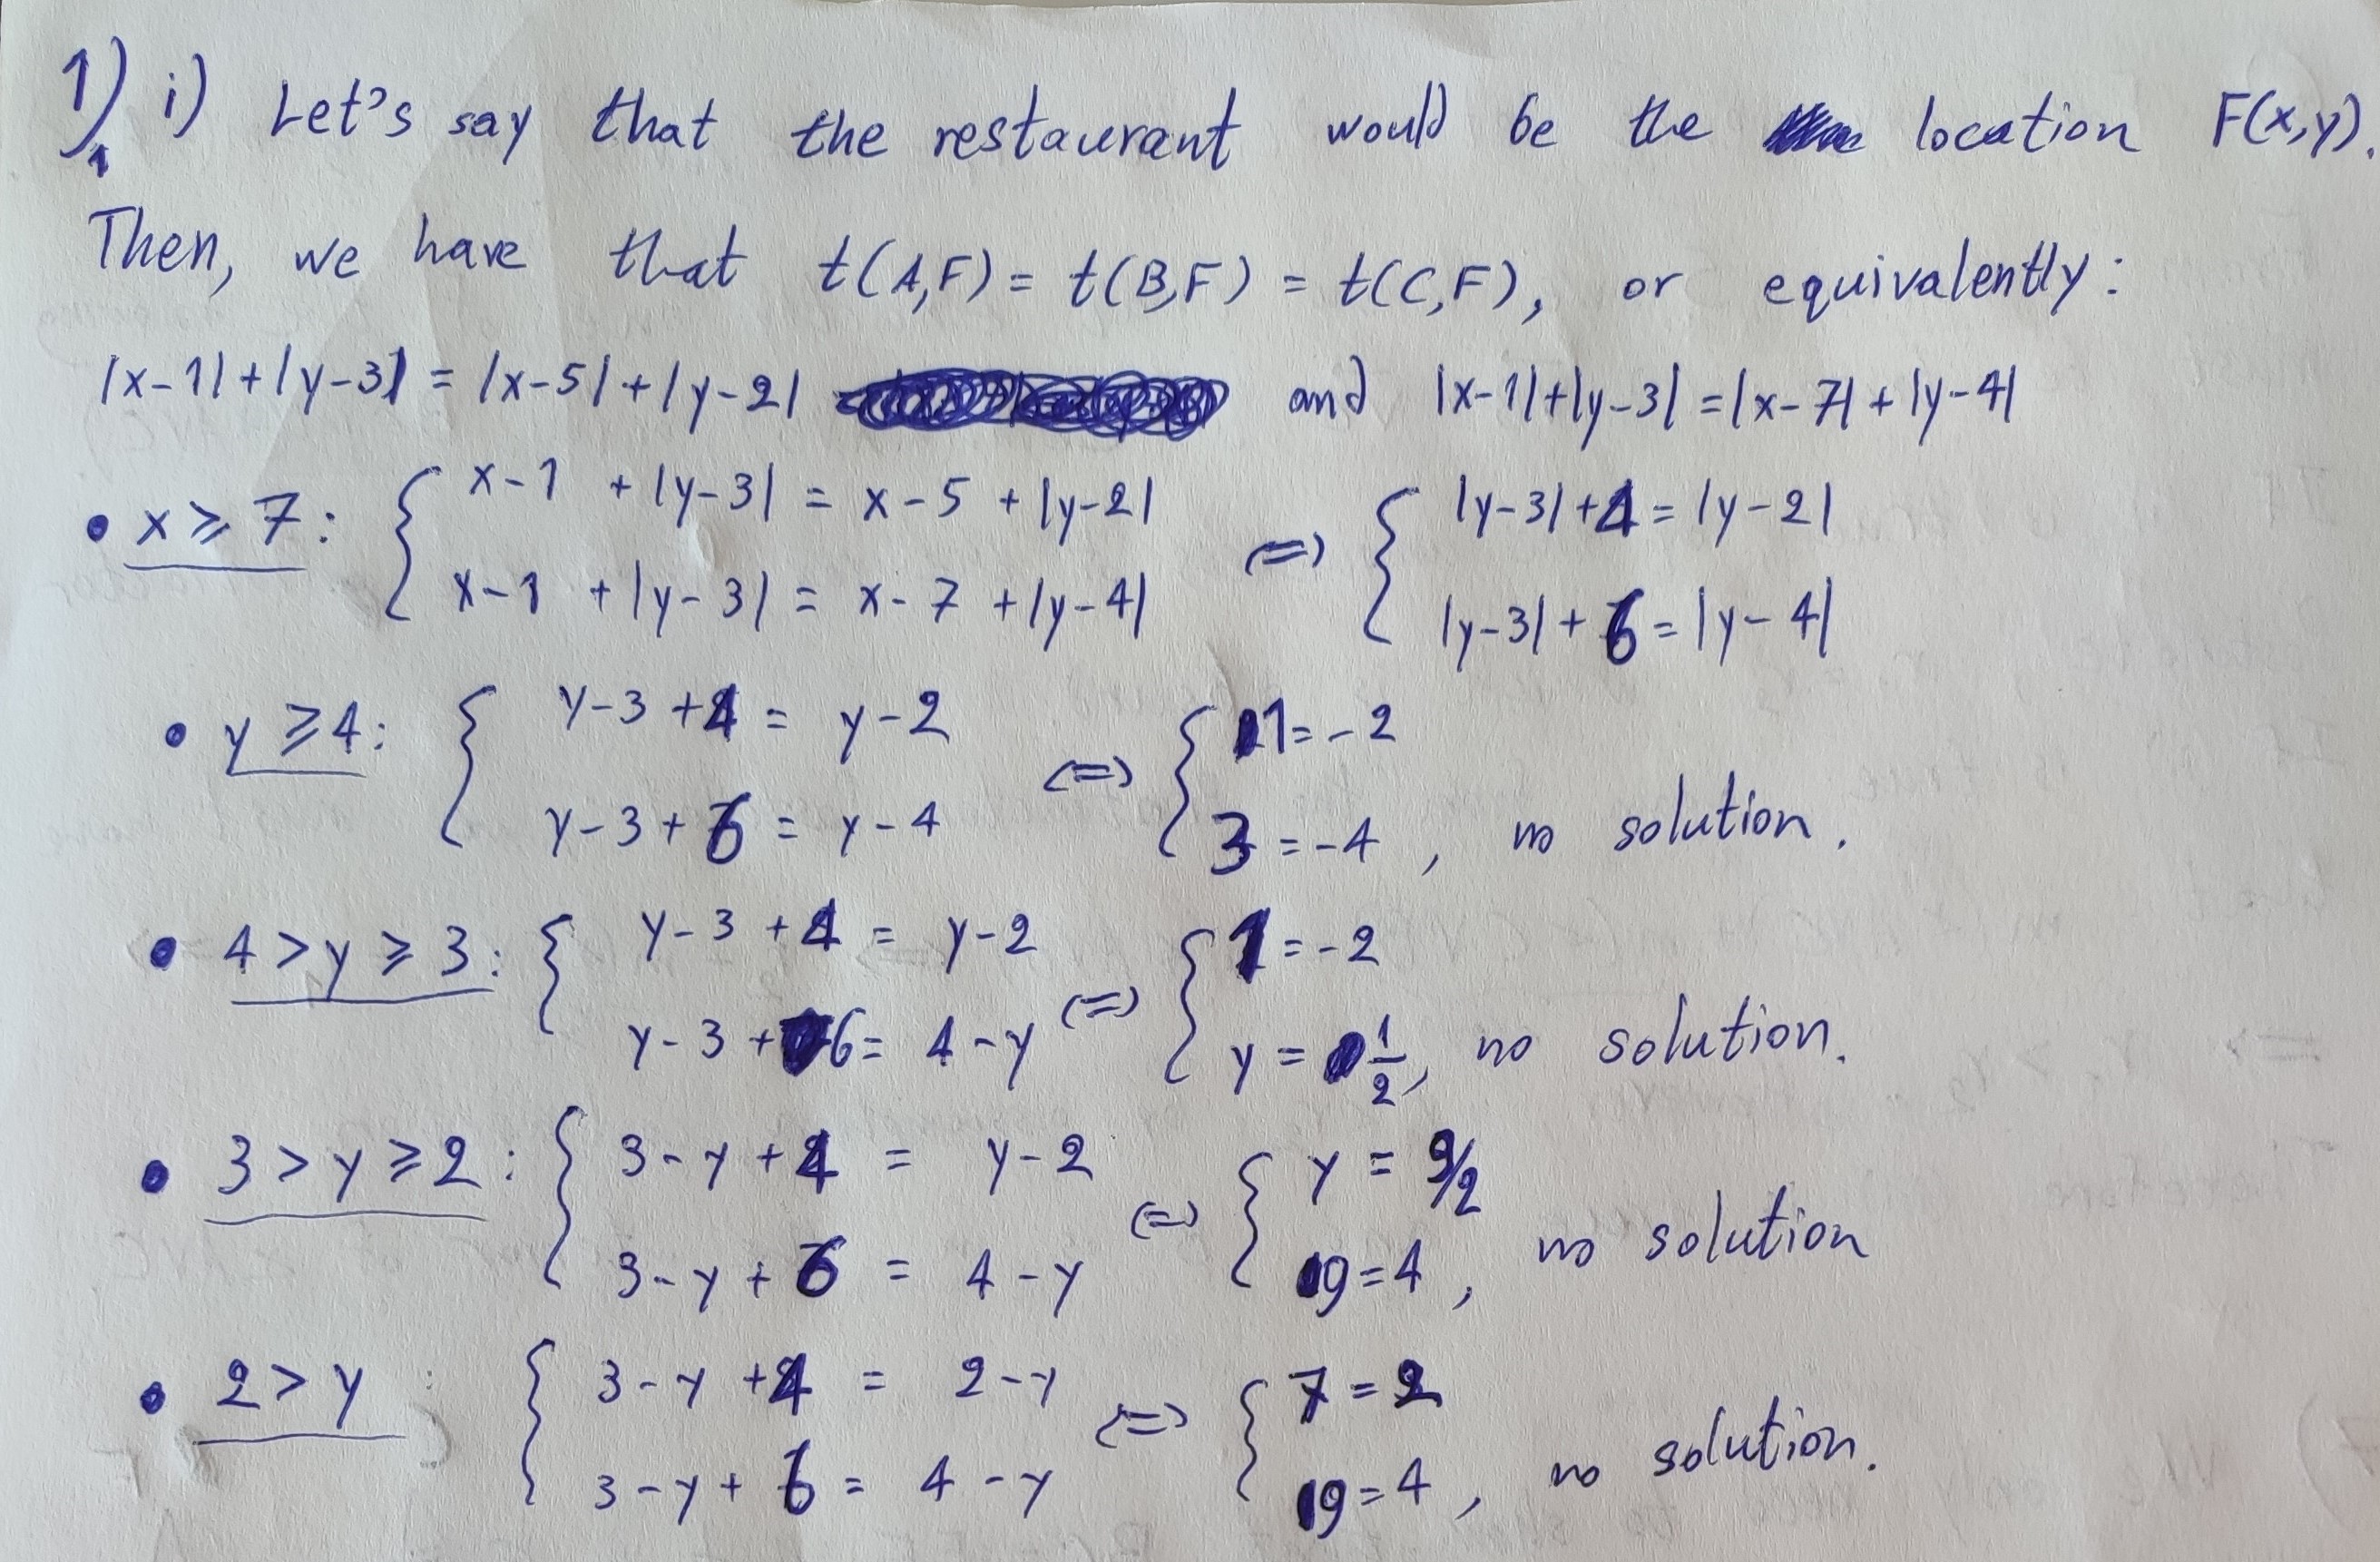 1) i) Let's say that the restaurant would be the location F(x,y).
Then, we have that t(A,F) = t(B,F) = t(C,F), or equivalently:
|x-1|+|y-3| = |x-5|+|y-2| and |x-1|+|y-3| = |x-7|+|y-4|
• x ≥ 7: { x-1 + |y-3| = x-5 + |y-2| <=> { |y-3|+4 = |y-2|
x-1 + |y-3| = x-7 + |y-4| |y-3|+6 = |y-4|
• y ≥ 4: { y-3+4 = y-2 <=> { 1 = -2
y-3+6 = y-4 3 = -4, no solution.
• 4 > y ≥ 3: { y-3+4 = y-2 <=> { 1 = -2
y-3+6 = 4-y y = 1/2, no solution.
• 3 > y ≥ 2: { 3-y+4 = y-2 <=> { y = 9/2
3-y+6 = 4-y 9 = 4, no solution
• 2 > y : { 3-y+4 = 2-y <=> { 7 = 2
3-y+6 = 4-y 9 = 4, no solution.